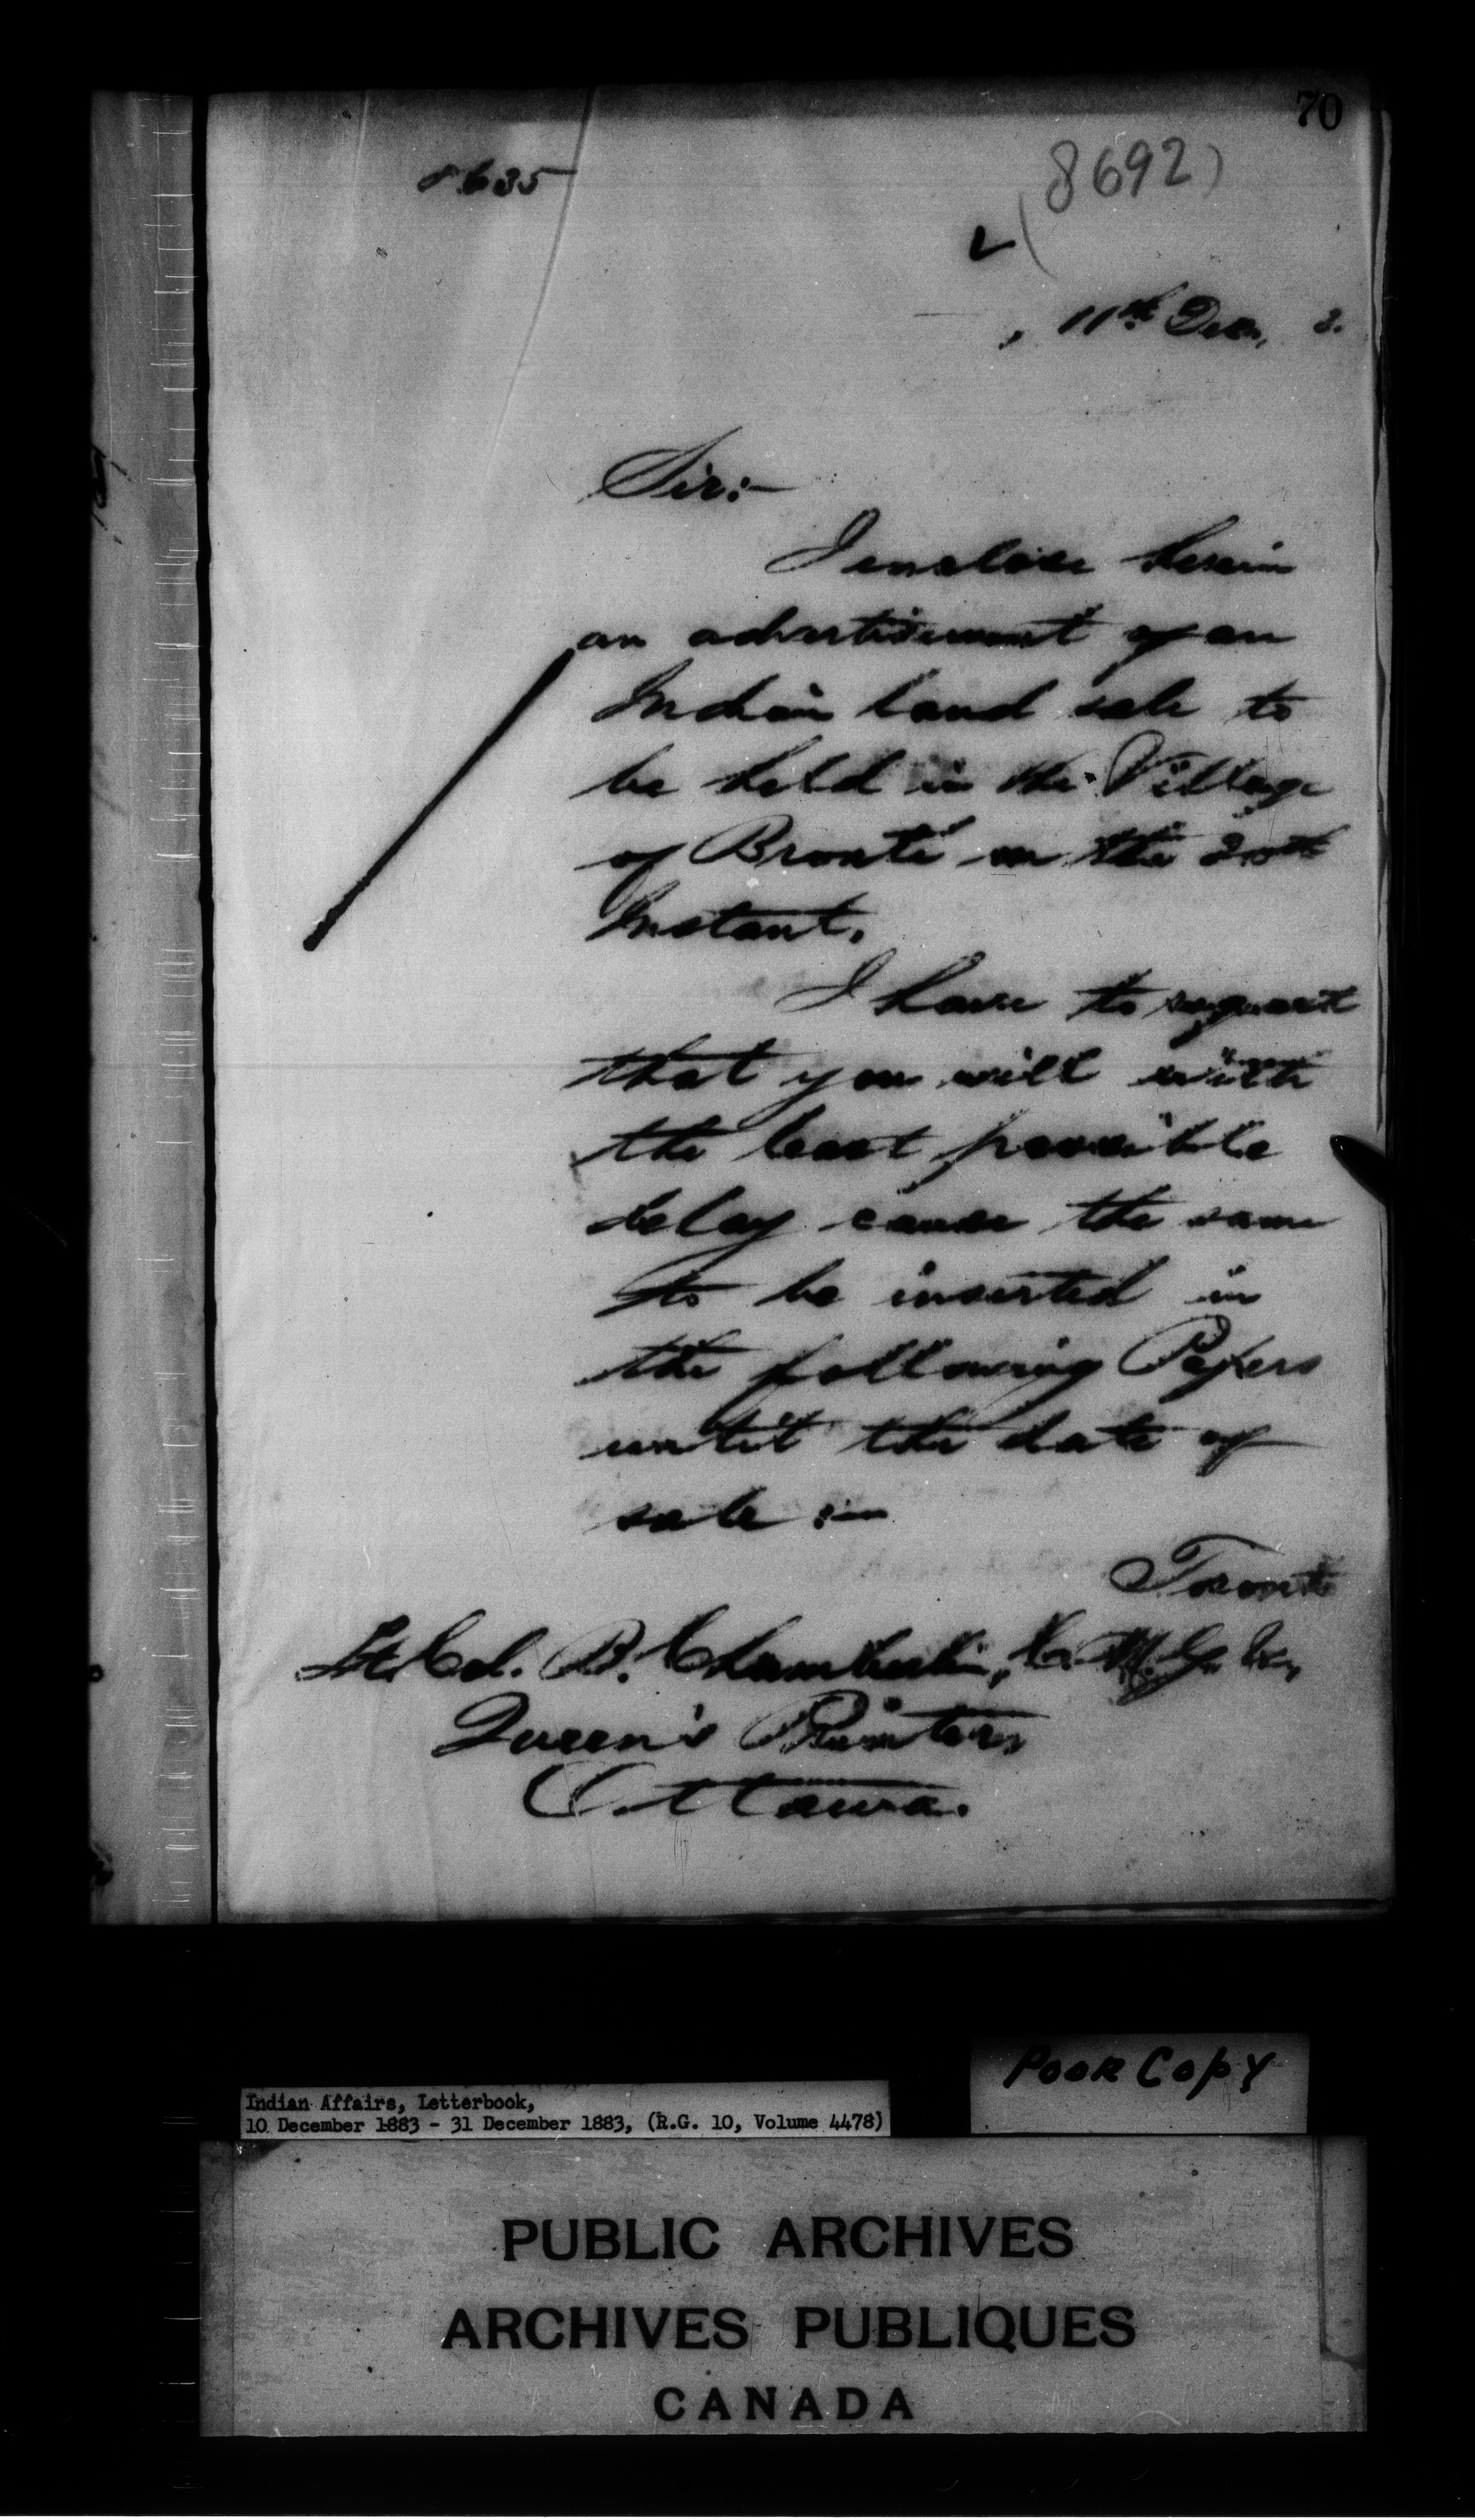 70
8635
(8692)
, 11th Dec, 3.
Sir:-
I enclose herein
an advertisement of an
Indian land sale to
be held in the Village
of Bronté on the 20th
Instant.
I have to request
that you will with
the least possible
delay cause the same
to be inserted in
the following Papers
until the date of
sale :-
Toronto
Lt. Col. B. Chamberlin, C. M. G. &c,
Queen's Printer,
Ottawa.
Poor Copy
Indian Affairs, Letterbook,
10 December 1883 - 31 December 1883, (R.G. 10, Volume 4478)
PUBLIC ARCHIVES
ARCHIVES PUBLIQUES
CANADA